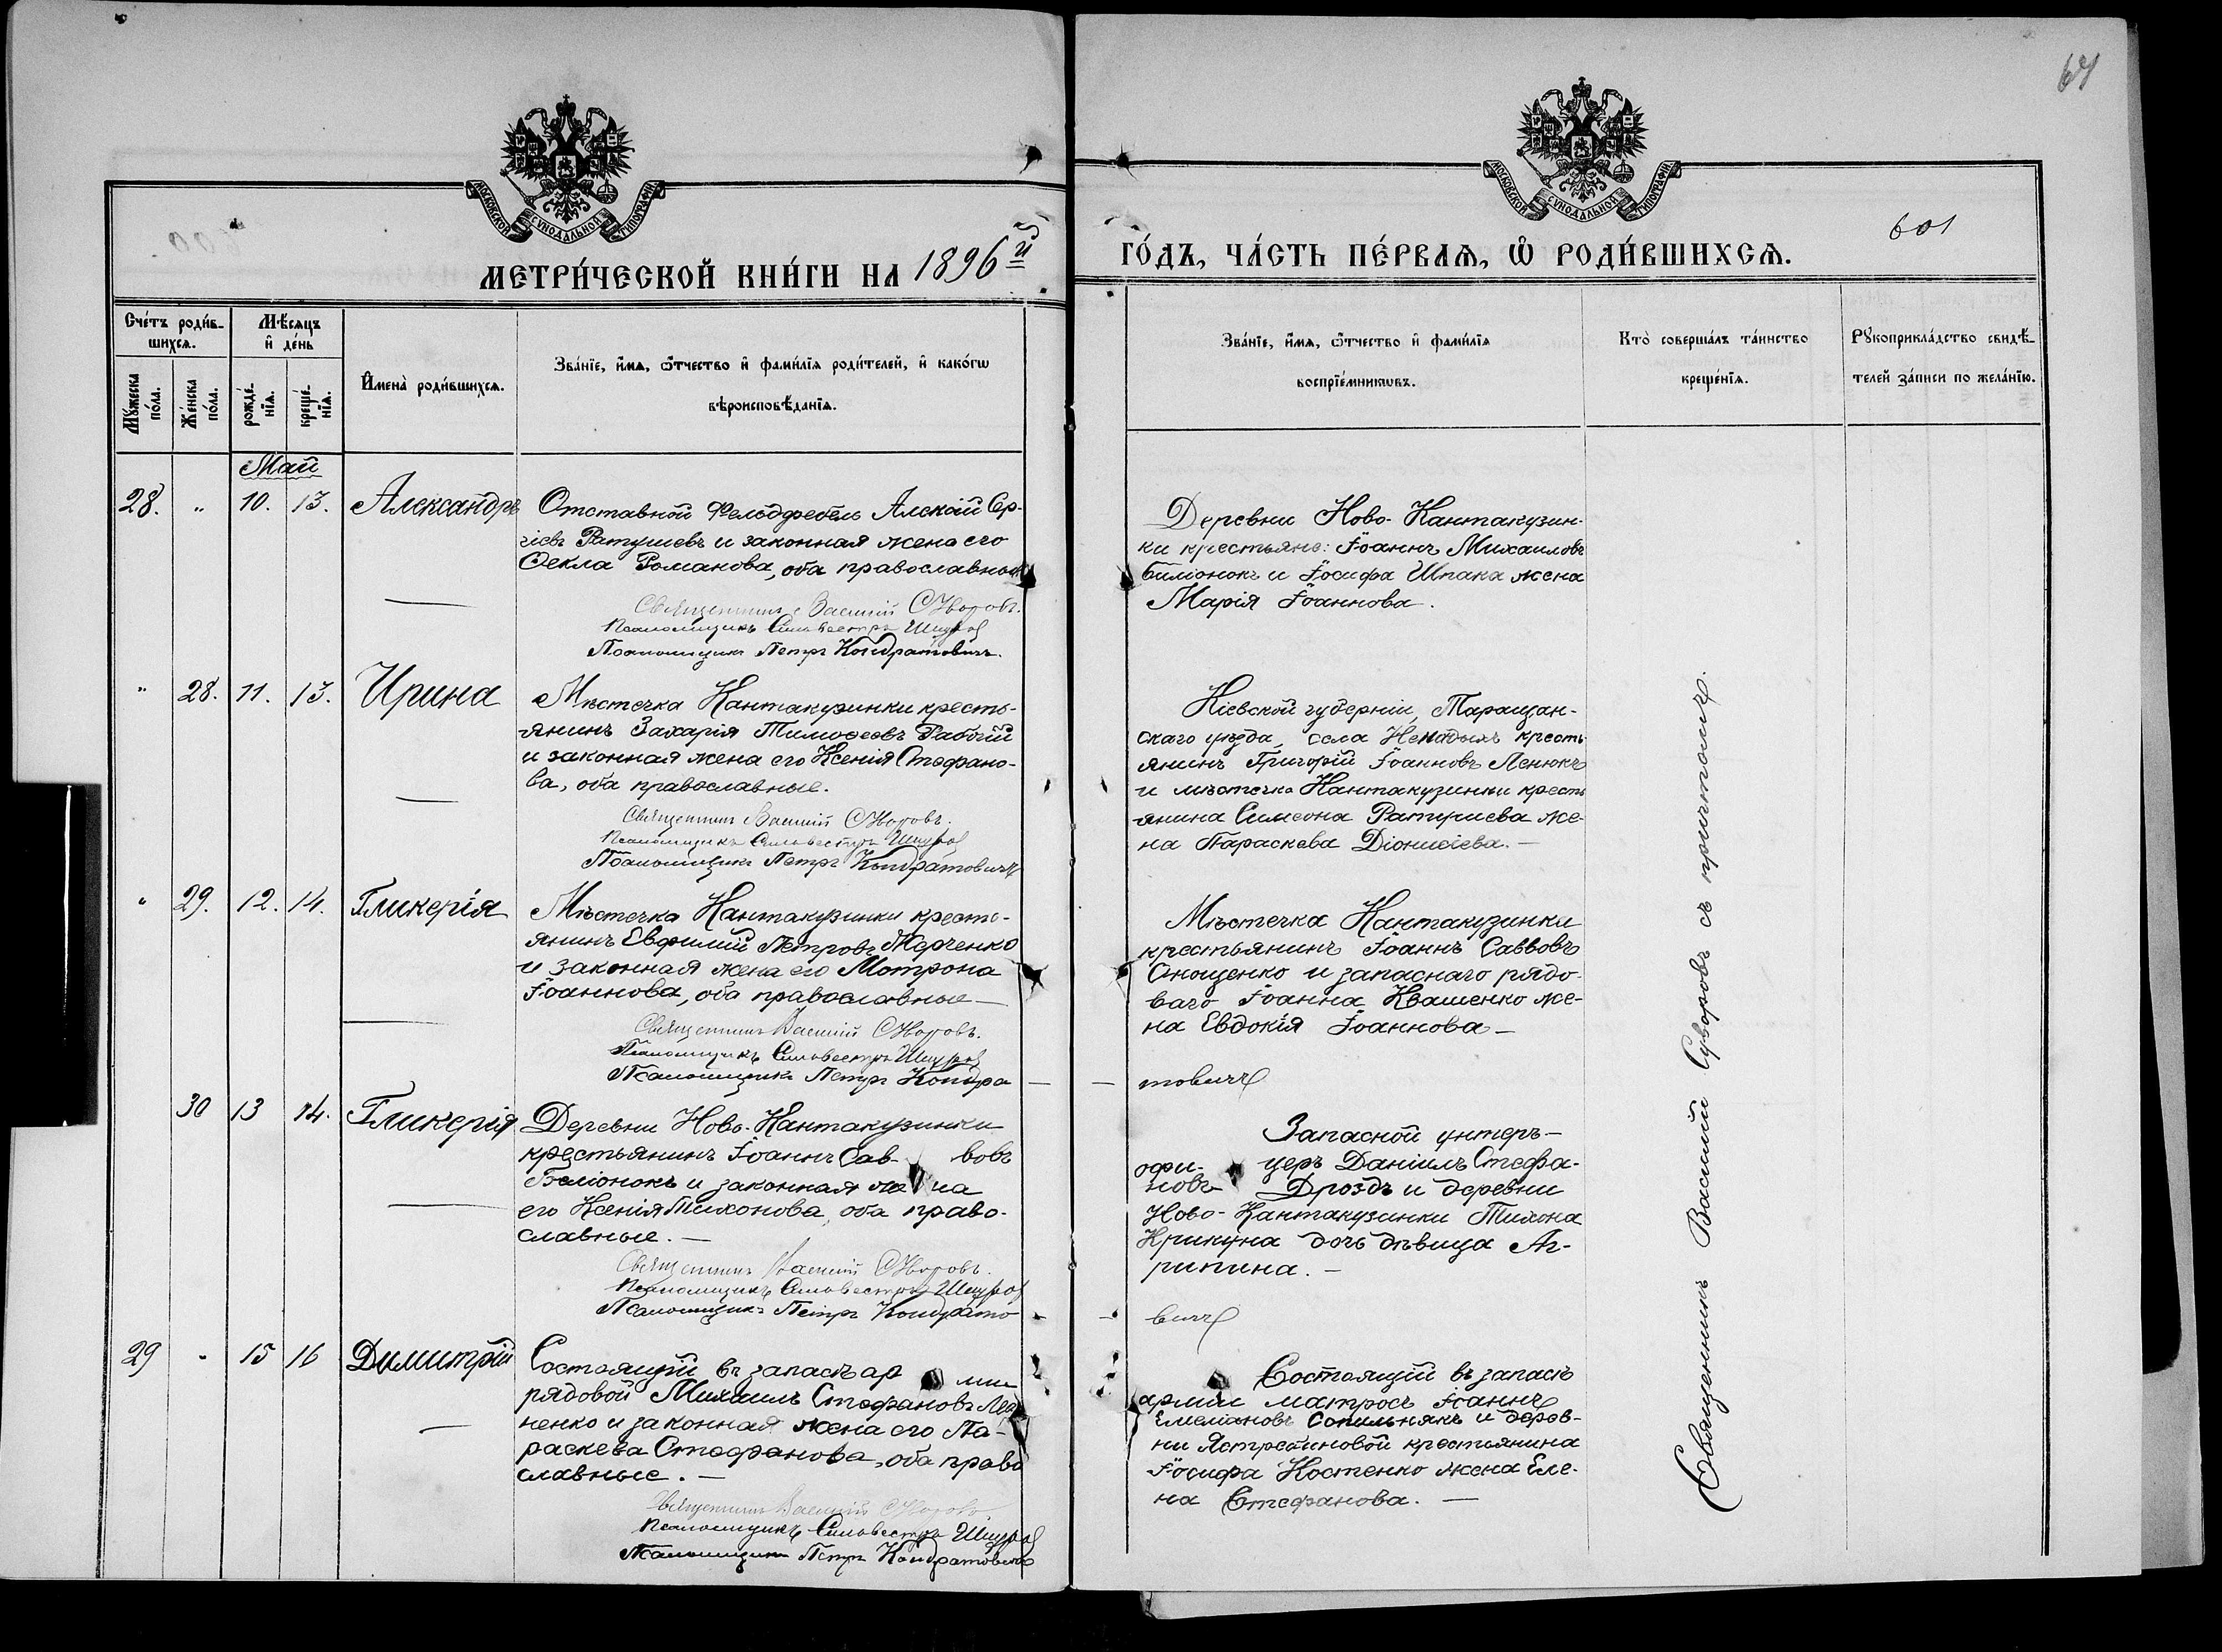 64
МОСКОВСКОЙ СУНОДАЛЬНОЙ ТИПОГРАФІИ
МОСКОВСКОЙ СУНОДАЛЬНОЙ ТИПОГРАФІИ
601
МЕТРИ́ЧЕСКОЙ КНИ́ГИ НА 1896й
ГО́ДЪ, ЧА́СТЬ ПЕ́РВАѦ, Ѽ РОДИ́ВШИХСѦ.
Сче́тъ роди́в-
шихсѧ.
Мꙋжеска
по́ла.
Же́нска
по́ла.
Мѣ́сѧцъ
и҆ де́нь
рожде́-
нїѧ.
креще́-
нїѧ.
И҆мена̀ роди́вшихсѧ.
Зва́нїе, и҆́мѧ, ѻ҆́тчество и҆ фами́лїѧ роди́телей, и҆ како́гѡ
вѣроисповѣ́данїѧ.
Зва́нїе, и҆́мѧ, ѻ҆́тчество и҆ фами́лїѧ
воспрїе́мникѡвъ.
Кто̀ соверша́лъ та́инство
креще́нїѧ.
Рꙋкоприкла́дство свидѣ́-
телей за́писи по жела́нїю.
Май
28. " 10. 13. Александръ
Отставной Фельдфебель Алексій Сер-
гіевъ Ратушевъ и законная жена его
Ѳекла Романова, оба православные
Священникъ Василій Суворовъ.
Псаломщикъ Сильвестръ
Псаломщикъ Петръ Кондратовичъ.
Деревни Ново-Кантакузин-
ки крестьяне: Іоаннъ Михаиловъ
Биліонокъ и Іосифа Шпака жена
Марія Іоаннова.
" 28. 11. 13. Ирина
Мѣстечка Кантакузинки кресть-
янинъ Захарія Тимоѳеевъ Рабчій
и законная жена его Ксенія Стефано-
ва, оба православные.
Священникъ Василій Суворовъ.
Псаломщикъ Сильвестръ
Псаломщикъ Петръ Кондратовичъ
Кіевской губерніи, Таращан-
скаго уѣзда, села Ненадыхъ кресть-
янинъ Григорій Іоанновъ Ленюкъ
и мѣстечка Кантакузинки кресть
янина Симеона Ратушева же-
на Параскева Діонисіева.—
" 29. 12. 14. Гликерія
Мѣстечка Кантакузинки кресть-
янинъ Евфимій Петровъ
и законная жена его Мотрона
Іоаннова, оба православные—
Священникъ Василій Суворовъ.
Псаломщикъ Сильвестръ
Псаломщикъ Петръ Кондра —
Мѣстечка Кантакузинки
крестьянинъ Іоаннъ Саввовъ
Онощенко и запаснаго рядо-
ваго Іоанна Квашенко же-
на Евдокія Іоаннова—
— товичъ
30 13 14. Гликерія
Деревни Ново-Кантакузинки
крестьянинъ Іоаннъ Сав- вовъ
Беліонокъ и законная же на
его Ксенія Тихонова, оба право-
славные.—
Священникъ Василій Суворовъ.
Псаломщикъ Сильвестръ
Псаломщикъ Петръ Кондрато -
Запасной унтеръ—
офи- церъ Даніилъ Стефа-
новъ Дроздъ и деревни
Ново-Кантакузинки Тихона
Крикуна дочь дѣвица Аг-
рипина.—
- вичъ
29 " 15 16 Димитрій
Состоящій въ запасѣ ар міи
рядовой Михаилъ Стефановъ
ненко и законная жена его Па-
раскева Стефанова, оба право
славные.—
Священникъ Василій Суворовъ.
Псаломщикъ Сильвестръ
Псаломщикъ Петръ Кондратовичъ
Состоящій въ запасѣ
арміи матросъ Іоаннъ
Емеліановъ Сопильнякъ и дерев-
ни Ястребиновой крестьянина
Іосифа Костенко жена Еле-
на Стефанова.—
Священникъ Василій Суворовъ съ причтомъ.